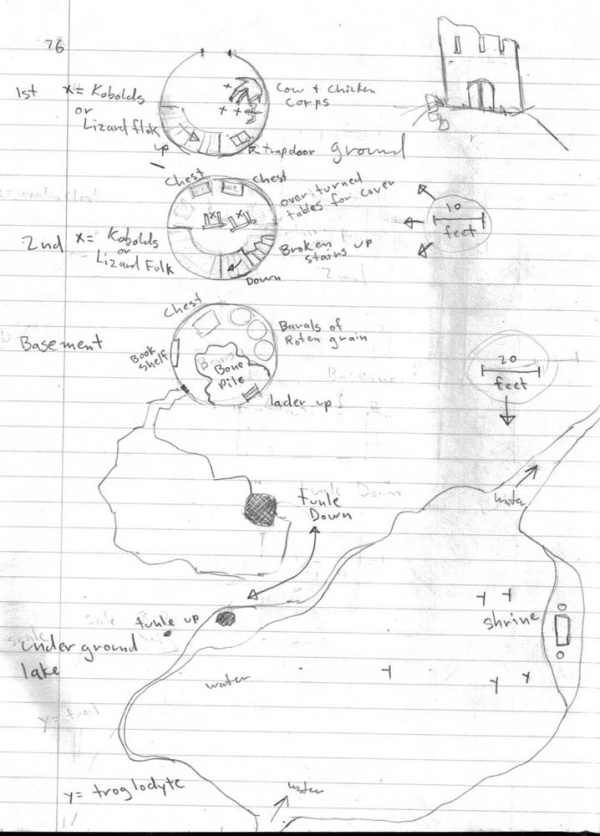 76
1st
x= Kobolds
or
Lizard flok
Cow + Chicken
Corps
up
trapdoor
ground
Chest
Chest
over turned
tables for cover
2nd
x= Kobolds
or
Lizard Folk
Broken
stains up
Down
10
feet
Basement
Chest
Book
shelf
Barals of
Roten grain
Bone
Pile
lader up
20
feet
tunle
Down
water
tunle up
under ground
lake
water
shrine
Y
Y
Y
Y
Y
y= troglodyte
water